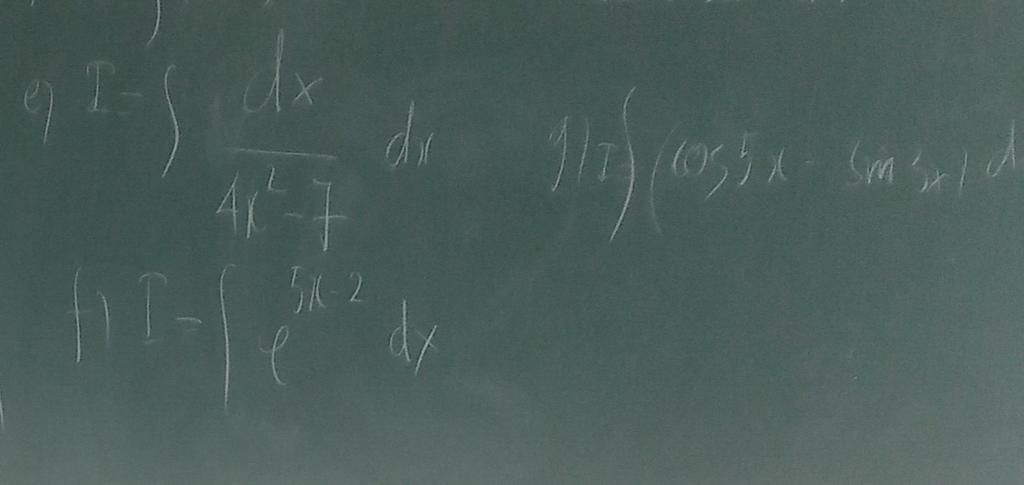 e) I = ∫ dx / 4x² - 7 dx
g) I = ∫ (cos 5x - sin 3x) d
f) I = ∫ e^{5x-2} dx